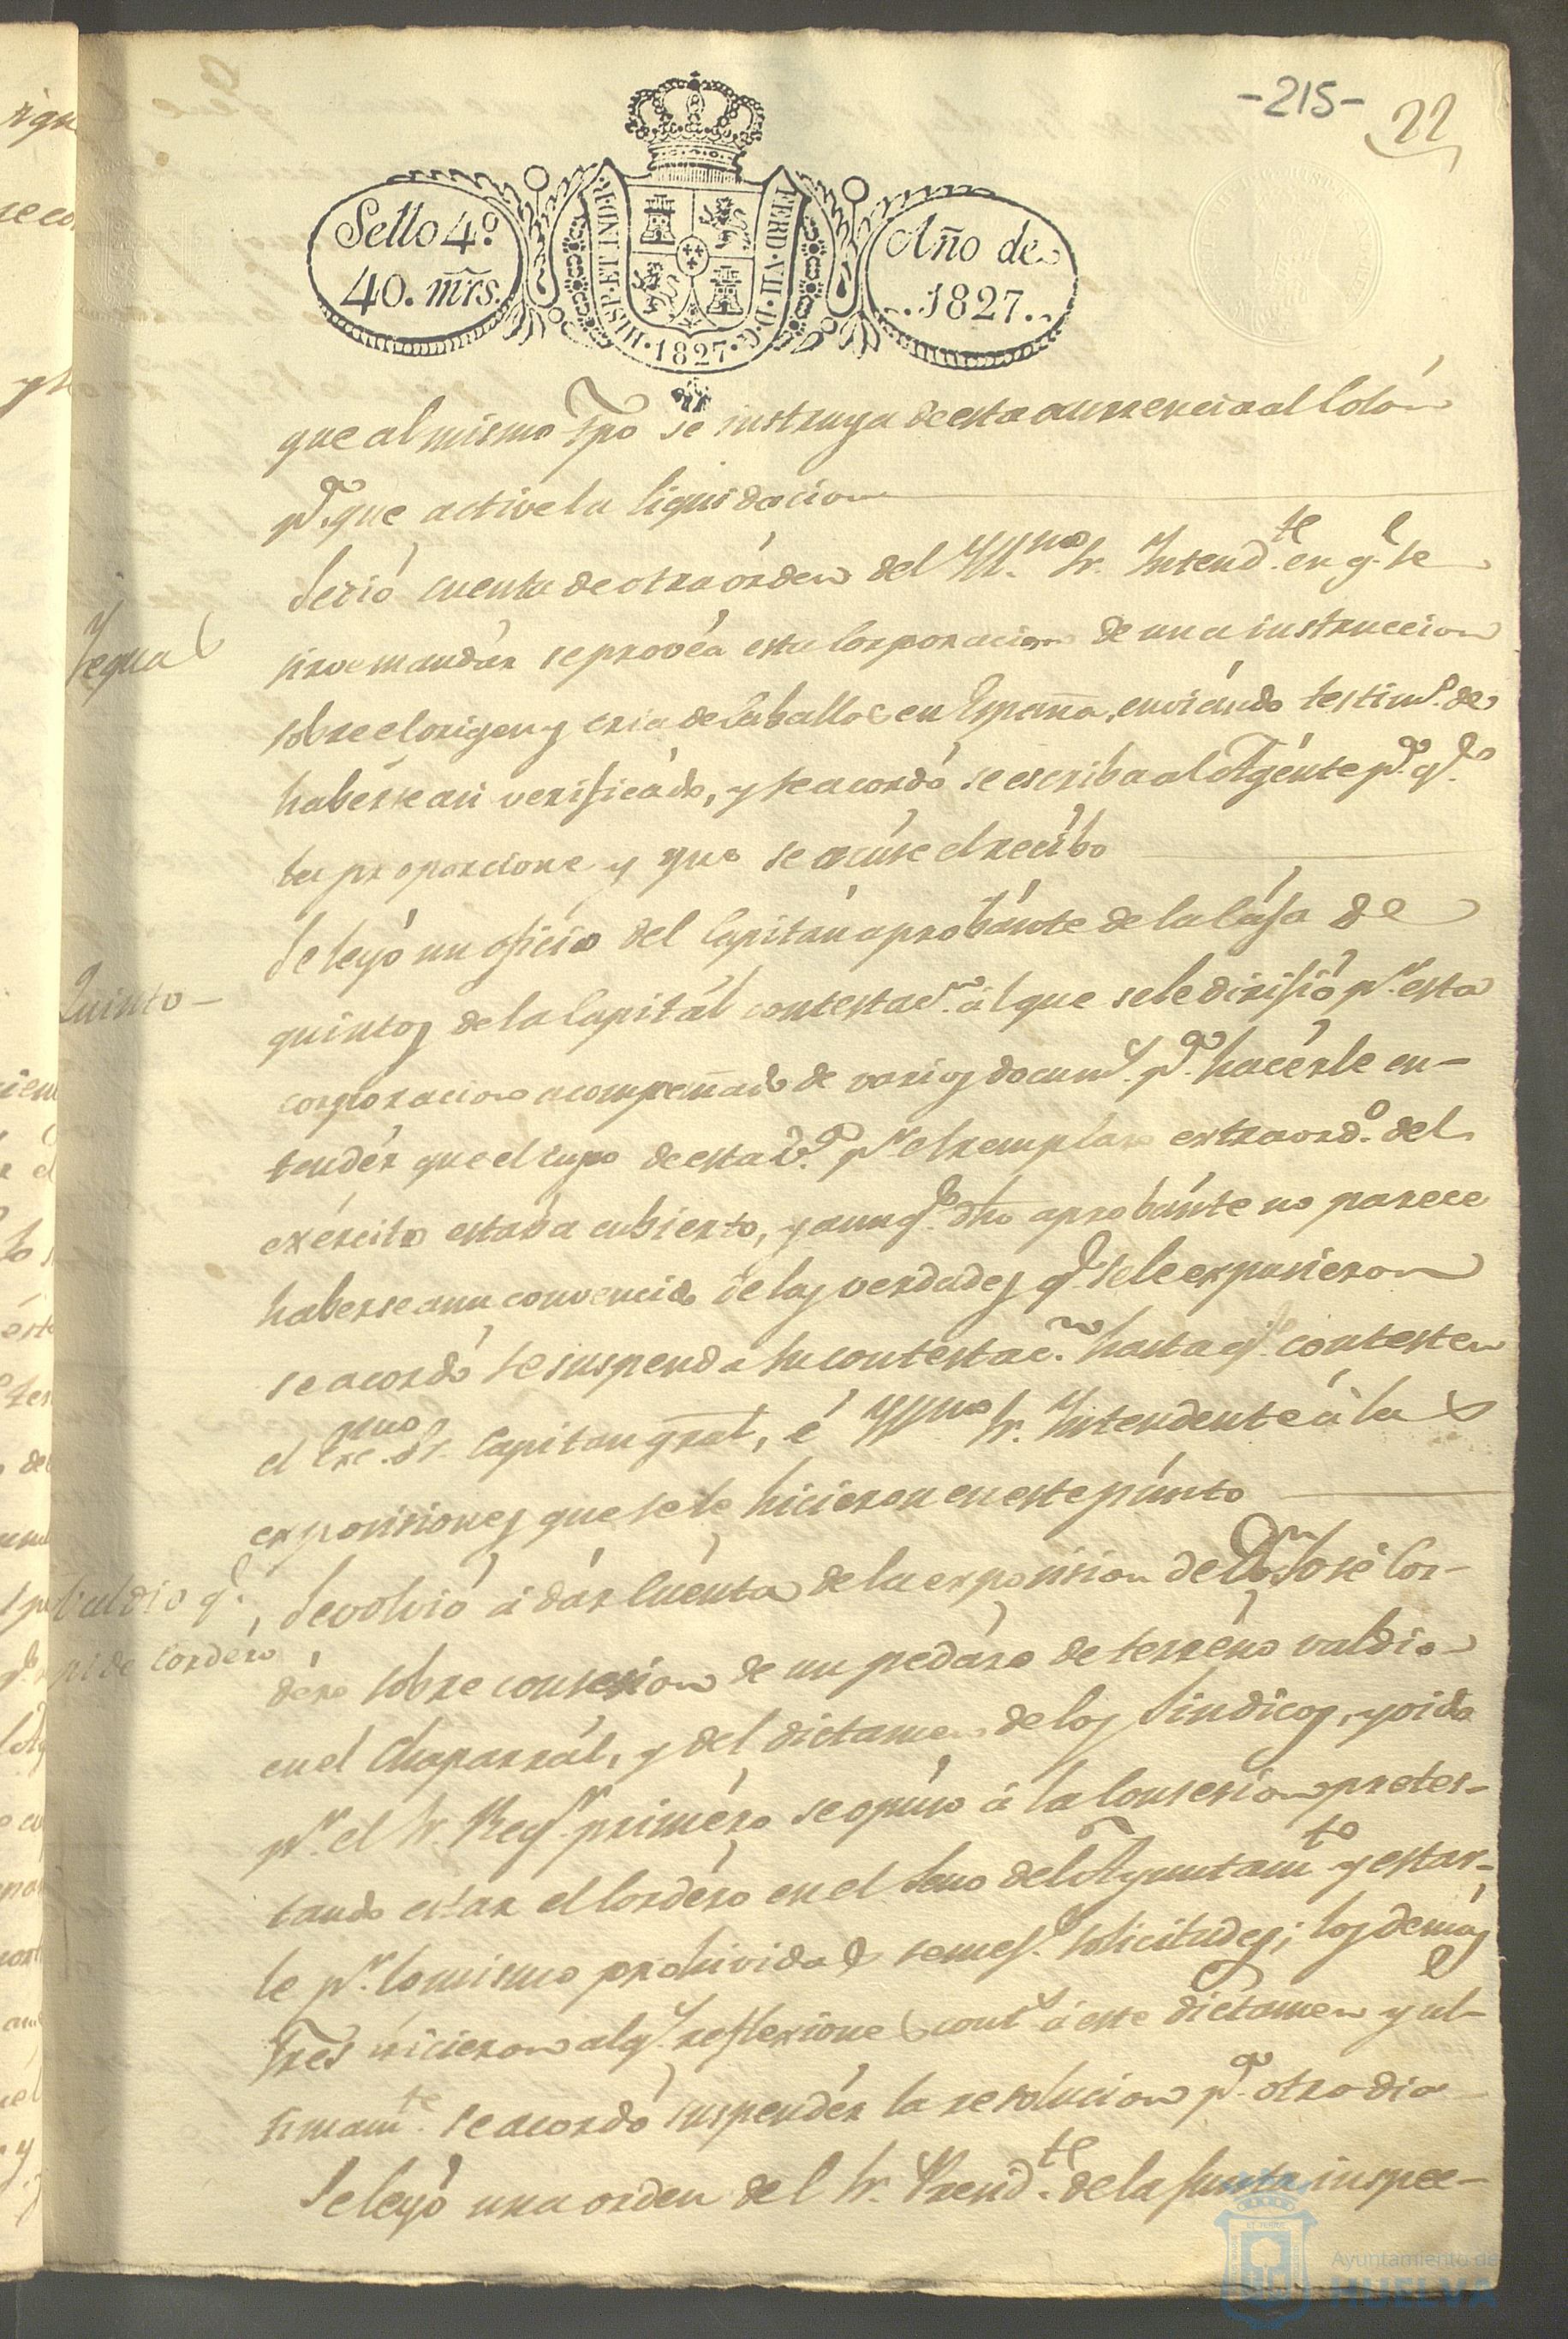 -215-
22
Sello 4º
40. mrs.
HISP. ET IND. R.
FERD. VII. D. G.
.1827.
Año de
1827.
que al mismo Tpo se instruya de esta ocurrencia al Colón
pª. que active la liquidacion
Yegua
Se dió cuenta de otra órden del Yllmo Sr. Yntendte. en ql. se
sirve mandár se provéa esta Corporacion de una instruccion
sobre el origen y cria de Caballos en España, enviándo testimº. de
habérse asi verificádo, y se acordó se escriba al Agénte pª. qe.
la proporcione y que se acúse el recíbo
Quinto-
Se leyó un oficio del Capitán aprobánte de la Cája de
quintos de la Capitál contestacn. ál que se le dirijió pr. esta
corporacion acompañado de varios documts. pª. hacérle en-
tendér que el cupo de esta vª. pr. el remplazo extraordº. del
exército estaba cubierto, y aunqe. dho aprobánte no parece
haberse aun convencido de las verdades qe. se le expusieron
se acordó se suspenda su contestacn. hasta qe. contesten
el Excmo. Sr. Capitan gral, é Yllmo Sr. Yntendente á la s
exposisiones que se le hicieron en este púnto
Baldio qe.
pide Cordéro
Se volvió á dár Cuénta de la exposision de Dn. José Cor-
déro sobre consesion de un pedázo de terréno valdio
en el Chaparrál, y del dictamen de los Sindicos, y oida
pr. el Sr. Regr. priméro se opúso á la Consesion pretes-
tando estar el Cordéro en el Seno del Ayuntamto. y estar-
le pr. lo mismo prohividas semejs. solicitudes; los demás
Sres hicieron algs. reflexiones conts. á este dictámen y ul-
timamte. se acordó suspendér la resolucion pª. otro dia
Se leyó una orden del Sr. Presidte. de la Junta inspec-
Ayuntamiento de
HUELVA